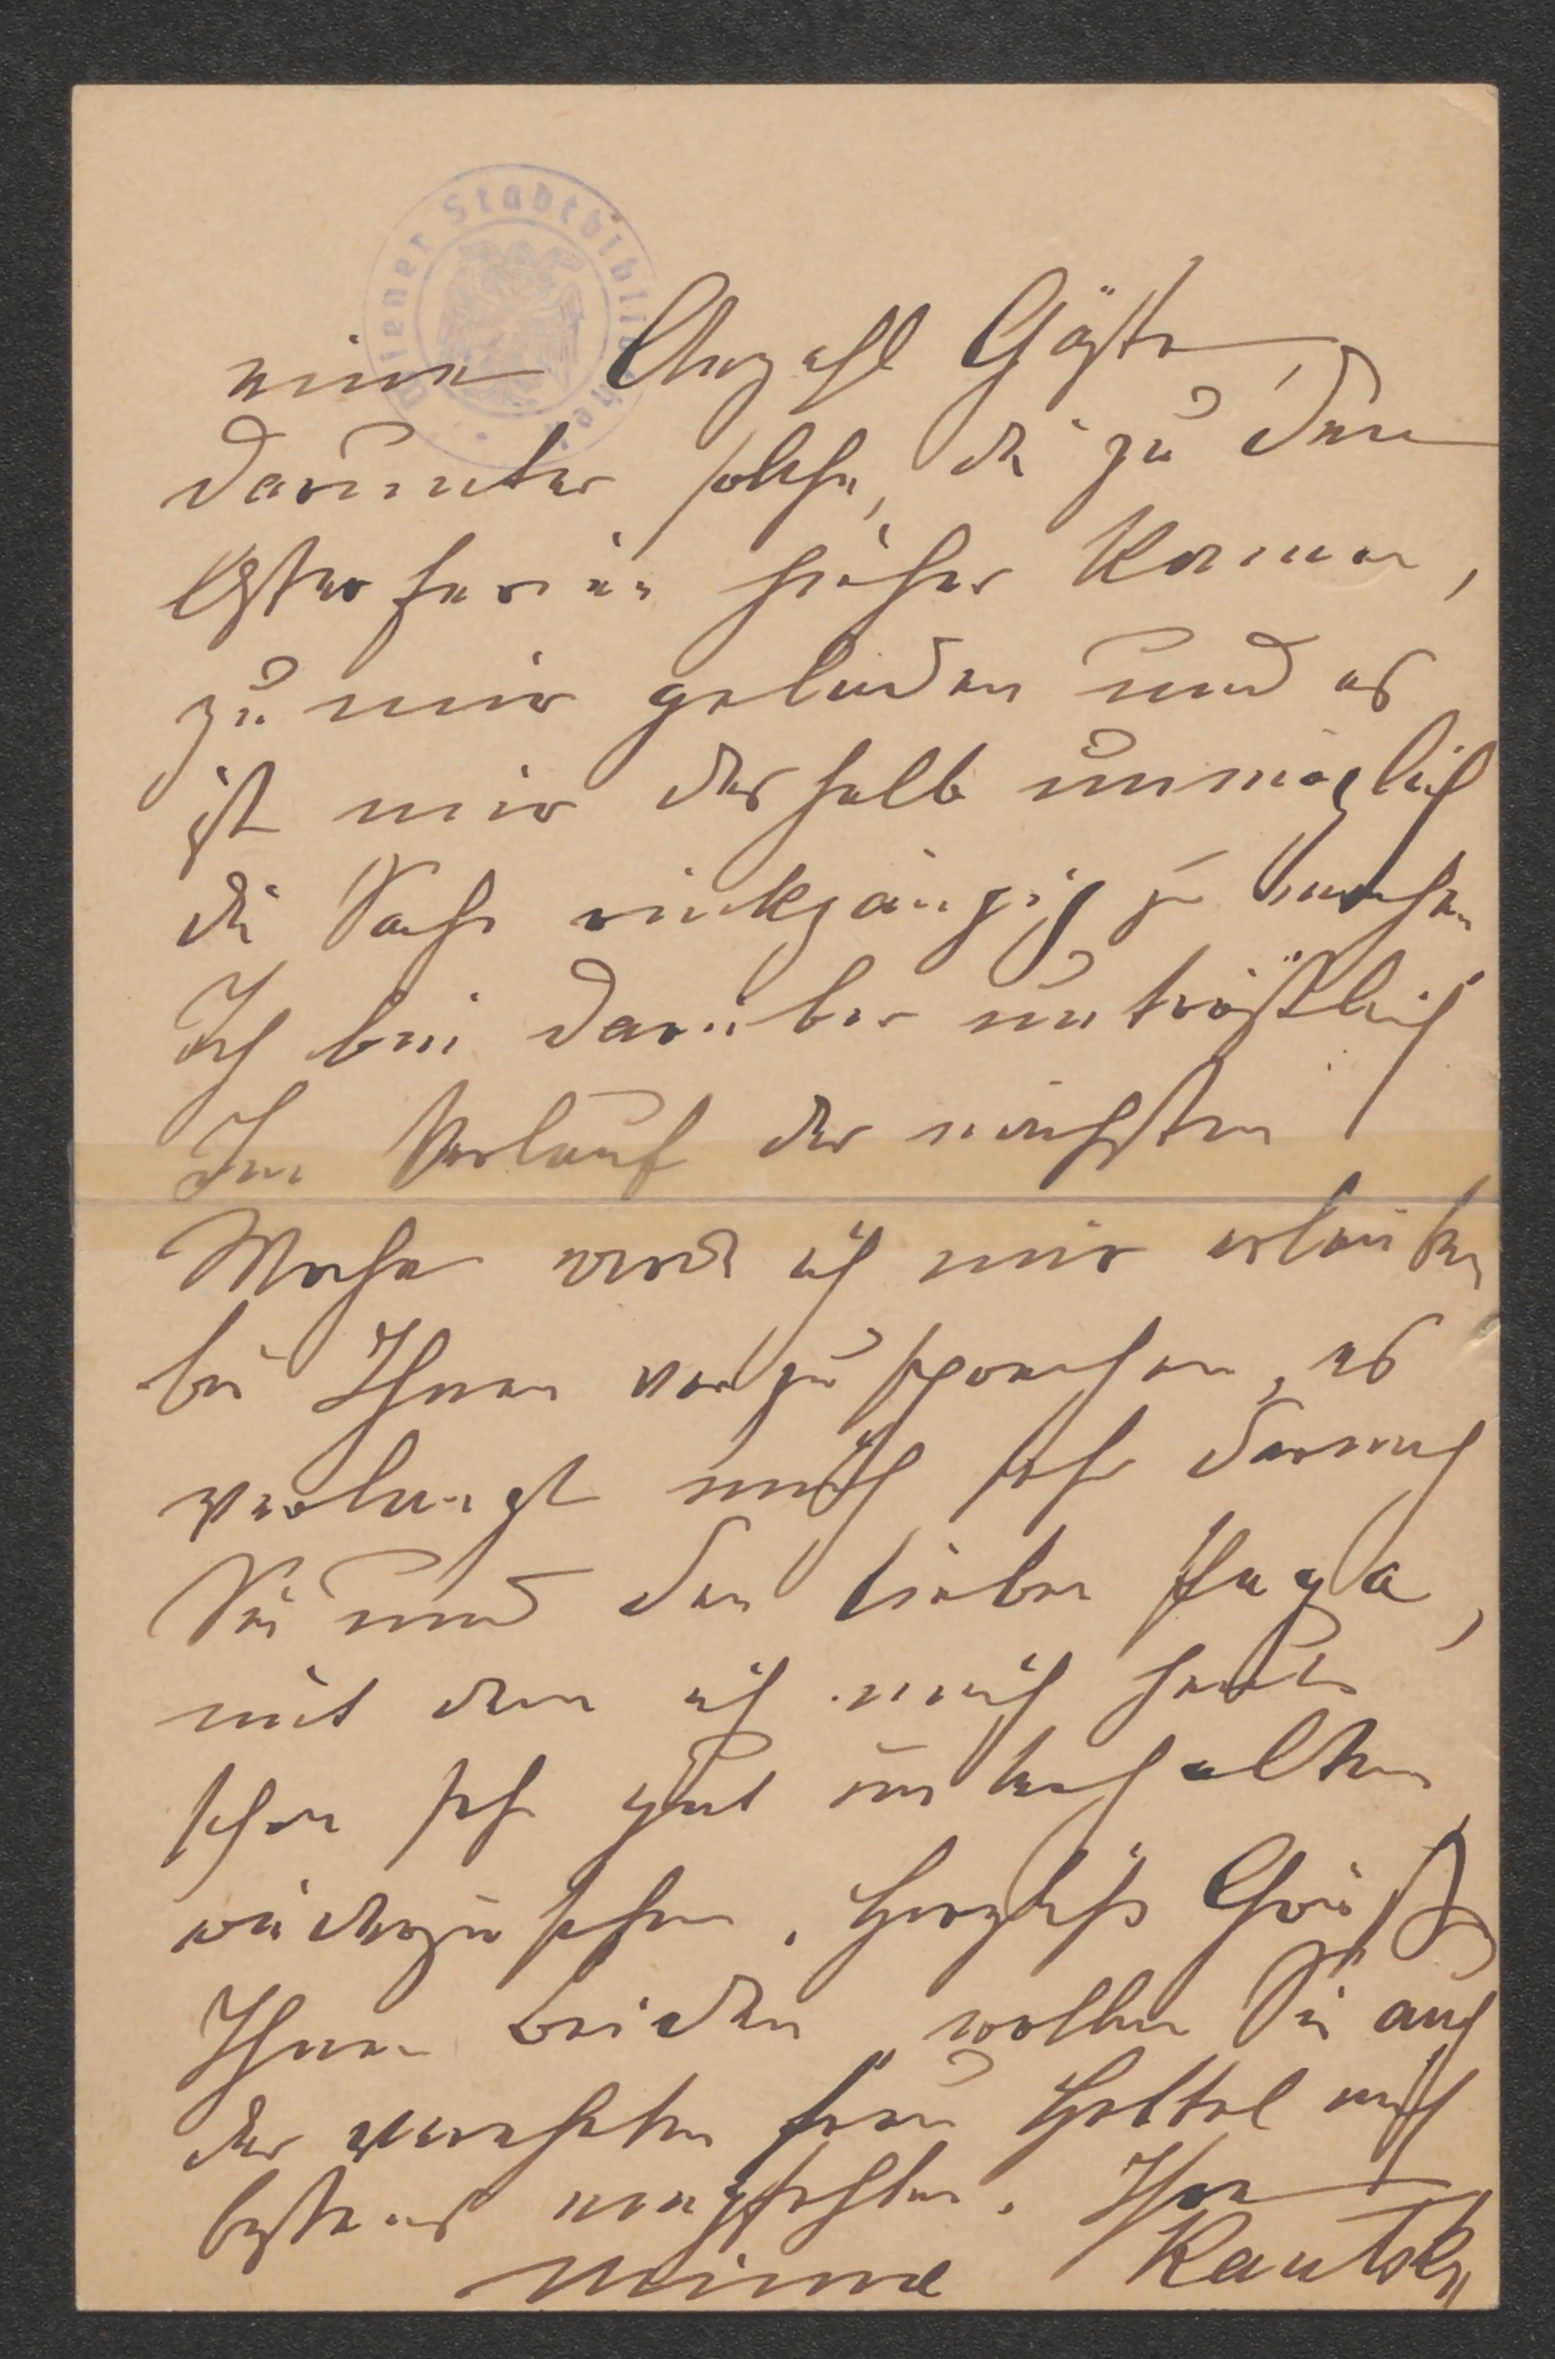 Wiener Stadtbibliothek
eine Anzahl Gäste,
darunter solche, die zu den
Osterferien hieher kommen,
zu mir geladen und es
ist mir deshalb unmöglich
die Sache rückgängig zu machen
Ich bin darüber untröstlich
Im Verlauf der nächsten
Woche werde ich mir erlauben
bei Ihnen vorzusprechen, es
verlangt mich sehr darnach
Sie und den lieben
mit dem ich mich heute
schon sehr gut unterhalten
wiederzusehen. Herzliche Grüße
Ihnen beiden, wollen Sie auch
der verehrten Frau mich
bestens empfehlen. Ihre
Minna Kautsky